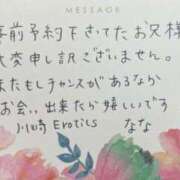 MESSAGE
事前予約下さってたお兄様
大変申し訳ございません。
またもしチャンスがあるなら
お会い出来たら嬉しいです
川崎 Erotics なな